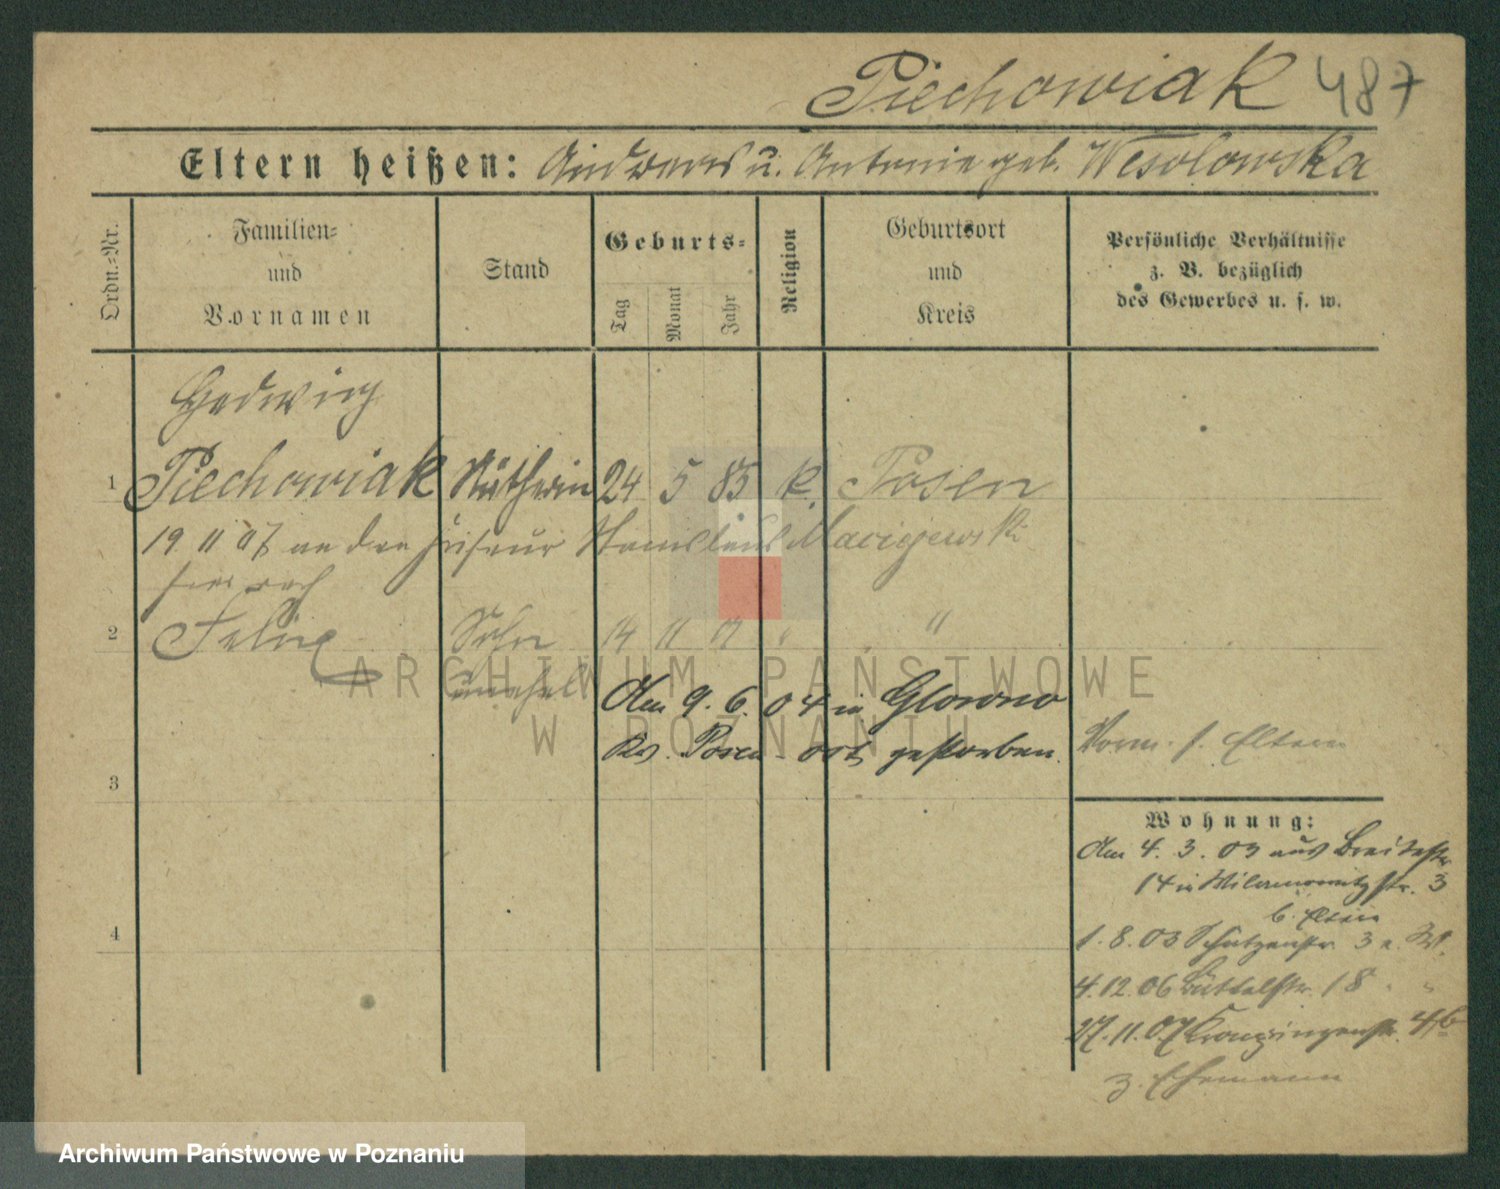 Piechowiak 487
Eltern heißen: Andreas u. Antonie geb. Wesolowska
Ordn.-Nr.
Familien-
und
Vornamen
Stand
Geburts-
Tag
Monat
Jahr
Religion
Geburtsort
und
Kreis
Persönliche Verhältnisse
z. B. bezüglich
des Gewerbes u. s. w.
Hedwig
1 Piechowiak Nätherin 24 5 85 k. Posen
19 11 07 an den Friseur Stanislaus Maciejewski
2 Felix Sohn 14 11 "
unehel
Am 9. 6. 04 in Glowno
Krs. Posen-Ost gestorben.
3
4
Vorm. s. Eltern
Wohnung:
Am 4. 3. 03 aus Breitestr.
14 in Wilamowitzstr. 3
b. Eltern
1. 8. 03 Schützenstr. 3
4. 12. 06 Büttelstr. 18 " "
27. 11. 07 Kronprinzenstr. 4b
z. Ehemann
ARCHIWUM PAŃSTWOWE
W POZNANIU
Archiwum Państwowe w Poznaniu